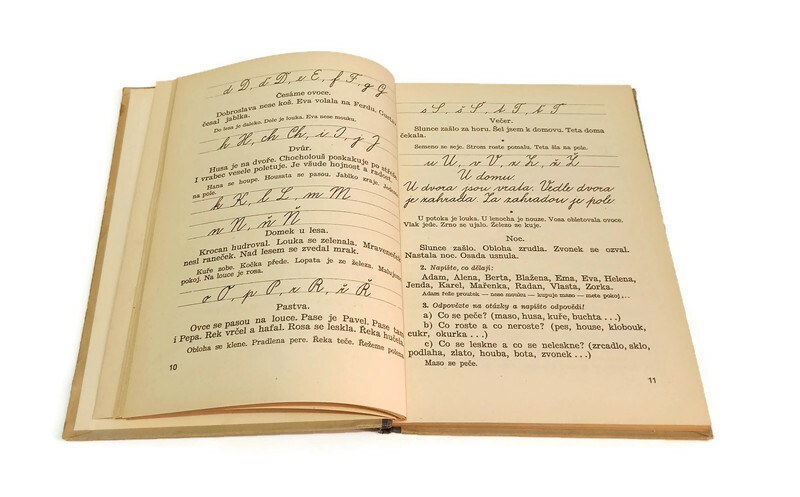 d D, ď Ď, e E, f F, g G
Česáme ovoce.
Dobroslava nese koš. Eva volala na Ferdu. Gustav
česal jablka.
Do lesa je daleko. Dole je louka. Eva nese mouku.
h H, ch Ch, i I, j J
Dvůr.
Husa je na dvoře. Chocholouš poskakuje po střeše.
I vrabec vesele poletuje. Je všude hojnost a radost.
Hana se houpe. Housata se pasou. Jablko zraje.
na pole.
k K, l L, m M
n N, ň Ň
Domek u lesa.
Krocan hudroval. Louka se zelenala. Mraveneček
nesl raneček. Nad lesem se zvedal mrak.
Kuře zobe. Kočka přede. Lopata je ze železa. Malujeme
pokoj. Na louce je rosa.
o O, p P, r R, ř Ř
Pastva.
Ovce se pasou na louce. Pase je Pavel. Pase tam
i Pepa. Rek vrčel a hafal. Rosa se leskla. Řeka hučela.
Obloha se klene. Pradlena pere. Řeka teče. Řežeme polena.
10
s S, š Š, t T, ť Ť
Večer.
Slunce zašlo za horu. Šel jsem k domovu. Teta doma
čekala.
Semeno se seje. Strom roste pomalu. Teta šla na pole.
u U, v V, z Z, ž Ž
U domu
U dvora jsou vrata. Vedle dvora
je zahrada. Za zahradou je pole
U potoka je louka. U lenocha je nouze. Vosa obletovala ovoce.
Vlak jede. Zrno se ujalo. Železo se kuje.
Noc.
Slunce zašlo. Obloha zrudla. Zvonek se ozval.
Nastala noc. Osada usnula.
2. Napište, co dělají:
Adam, Alena, Berta, Blažena, Ema, Eva, Helena,
Jenda, Karel, Mařenka, Radan, Vlasta, Zorka.
Adam řeže proutek — nese mouku — kupuje maso — mete pokoj...
3. Odpovězte na otázky a napište odpovědi!
a) Co se peče? (maso, husa, kuře, buchta ...)
b) Co roste a co neroste? (pes, house, klobouk,
cukr, okurka ...)
c) Co se leskne a co se neleskne? (zrcadlo, sklo,
podlaha, zlato, houba, bota, zvonek ...)
Maso se peče.
11